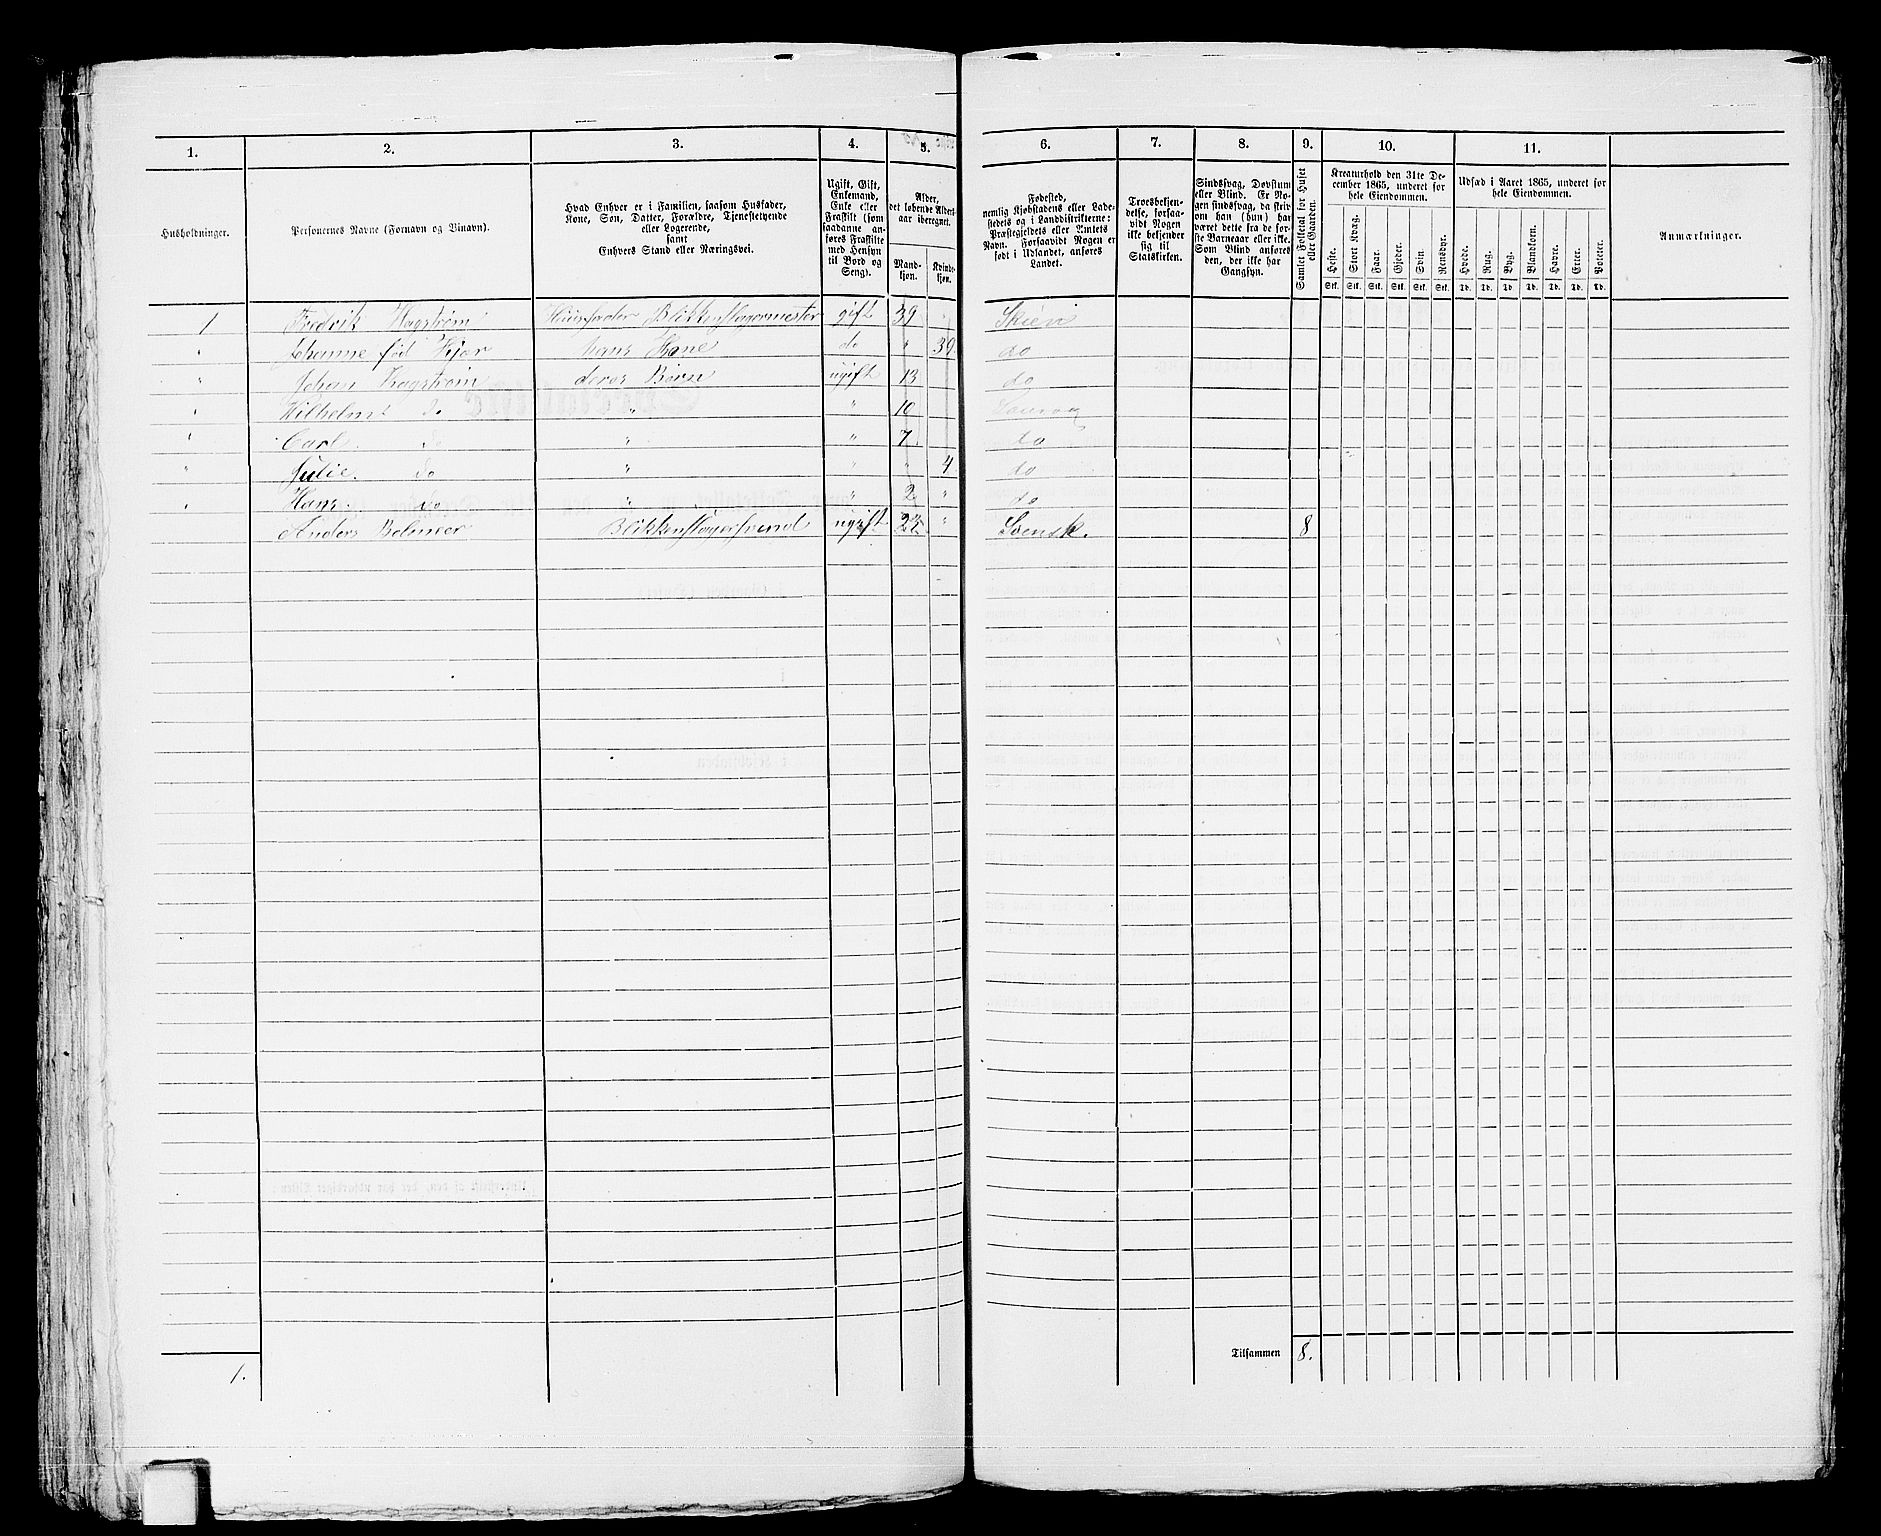 1. 2. 3. 4. 5. 6. 7. 8. 9. 10. 11.
Husholdninger.
Personernes Navne (Fornavn og Tilnavn).
Hvad Enhver er i Familien, saasom Husfader,
Kone, Søn, Datter, Forældre, Tjenestetyende
eller Logerende,
samt
Enhvers Stand eller Næringsvei.
Ugift, Gift,
Enkemand,
Enke eller
Fraskilt (som
saadanne an-
føres Fraskilte
med Hensyn
til Bord og
Seng).
Alder,
det løbende Alders-
aar iberegnet.
Mand-
kjøn.
Kvinde-
kjøn.
Fødested,
nemlig Kjøbstadens eller Lade-
stedets og i Landdistrikterne:
Præstegjeldets eller Amtets
Navn. Forsaavidt Nogen er
født i Udlandet, anføres
Landet.
Troesbekjen-
delse, forsaa-
vidt Nogen
ikke bekjender
sig til
Statskirken.
Sindssvag, Døvstum
eller Blind. Er No-
gen sindssvag, da skriv
om han (hun) har
været dette fra de før-
ste Barneaar eller ikke.
Som Blind anføres
den, der ikke har
Gangsyn.
Samlet Folketal for Huset
eller Gaarden.
Kreaturhold den 31te De-
cember 1865, underet for
hele Eiendommen.
Heste. Stort Kvæg. Faar. Gjeder. Svin Rensdyr.
Stk. Stk. Stk. Stk. Stk. Stk.
Udsæd i Aaret 1865, underet for
hele Eiendommen.
Hvede. Rug. Byg. Blandkorn. Havre. Erter. Poteter.
Td. Td. Td. Td. Td. Td. Td.
Anmærkninger.
1 Fredrik Hagstrøm Huusfader Blikkenslagermester gift 39 Skien
" Johanne fød hans Kone do " 39 do
" Johan Hagstrøm deres Børn ugift 13 do
" Wilhelm do " " 10
" Carl do " " 7 do
" Julie do " " " 4 do
" Hans do " " 2 " do
Anders Blikkenslagersvend ugift 22 " Svensk. 8
Tilsammen 8.
1.